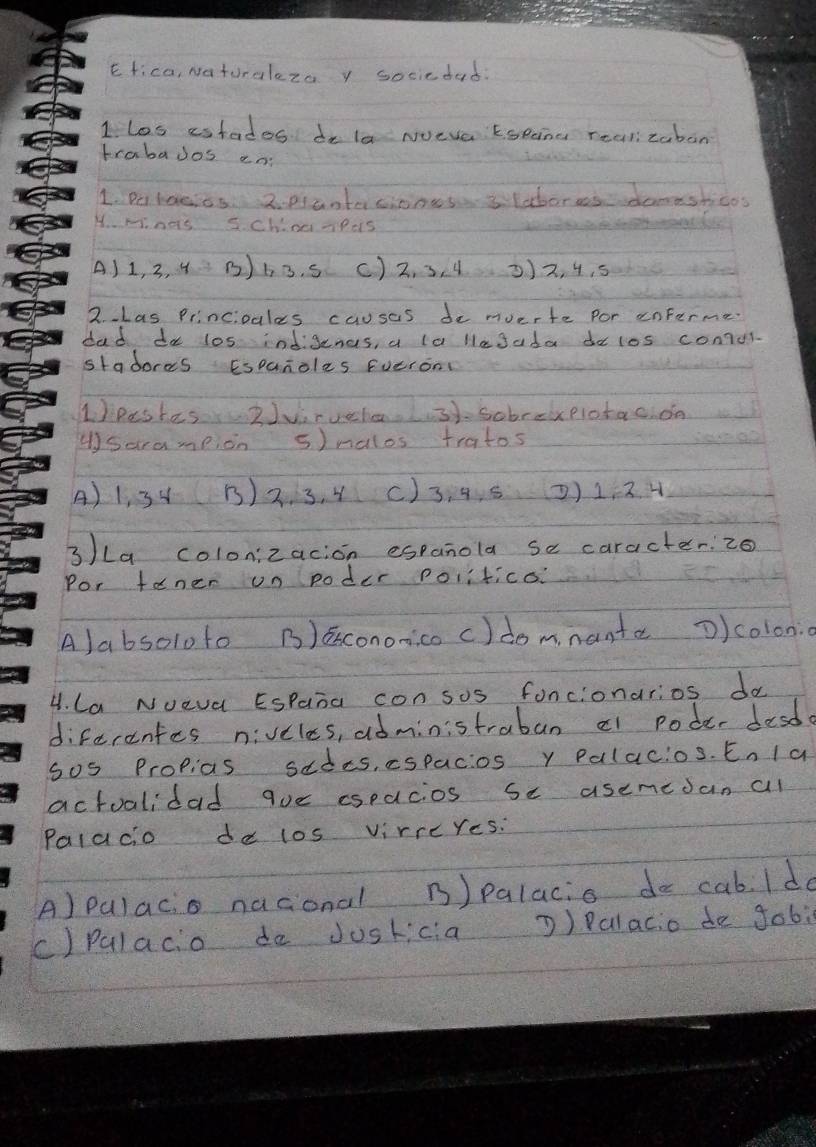 Etica, Naturaleza y sociedad:
1. Los estados de la Nueva España realizaban
trabajos en:
1. Palacios 2. Plantaciones 3 labores domesticos
4. Minas 5. Chinampas
A) 1, 2, 4 B) 1, 3, 5 C) 2, 3, 4 D) 2, 4, 5
2. Las Principales causas de muerte Por enferme-
dad de los indigenas, a la llegada de los conqui-
stadores Españoles Fuerón:
1) Pestes 2) viruela 3) Sobrexplotación
4) Sarampión 5) malos tratos
A) 1, 3 4 B) 2, 3, 4 C) 3, 4, 5 D) 1, 2 4
3) La colonización española se caracterizo
Por tener un poder Politico:
A) absoluto B) Economico C) dominante D) colonia
4. La Nueva España con sus funcionarios de
diferentes niveles, administraban el Poder desde
sus Propias sedes, espacios y Palacios. En la
actualidad que espacios se asemejan al
Palacio de los virreyes:
A) Palacio nacional B) Palacio de cabildo
C) Palacio de Justicia D) Palacio de gobi